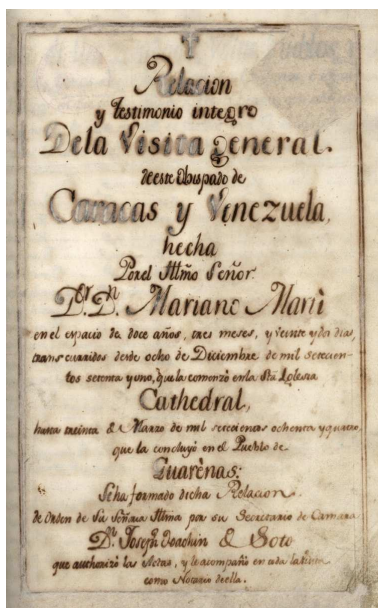 Relacion
y testimonio integro
Dela Visita general
deeste Obispado de
Caracas y Venezuela,
hecha
Porel Illmo Señor
Dor. Dn. Mariano Martì
en el espacio de doce años, tres meses, y veinte y dos dias,
trans curridos desde ocho de Diciembre de mil setecien-
tos setenta y uno, que la comenzò en la Sta Iglesia
Cathedral,
hasta treinta de Marzo de mil setecientos ochenta y quatro,
que la concluyò en el Pueblo de
Guarènas:
Seha formado dicha Relacion
de Orden de Su Señoria Illma por su Secretario de Camara
Dn. Joseph Joachin de Soto
que authorizò las Actas, y lo acompañò en toda la
como Notario deella.